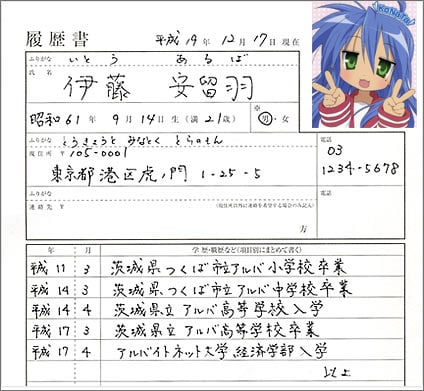 KONATA
履歴書 平成19年12月17日現在
ふりがな いとう あるば
氏名 伊藤 安留羽
昭和61年9月14日生(満21歳) ※ 男・女
ふりがな とうきょうと みなとく とらのもん
現住所 〒105-0001
東京都港区虎ノ門1-25-5
電話
03
1234-5678
ふりがな
連絡先 〒 (現住所以外に連絡を希望する場合のみ記入)
方
電話
年 月 学歴・職歴など(項目別にまとめて書く)
平成11 3 茨城県つくば市立アルバ小学校卒業
平成14 3 茨城県つくば市立アルバ中学校卒業
平成14 4 茨城県立アルバ高等学校入学
平成17 3 茨城県立アルバ高等学校卒業
平成17 4 アルバイトネット大学経済学部入学
以上